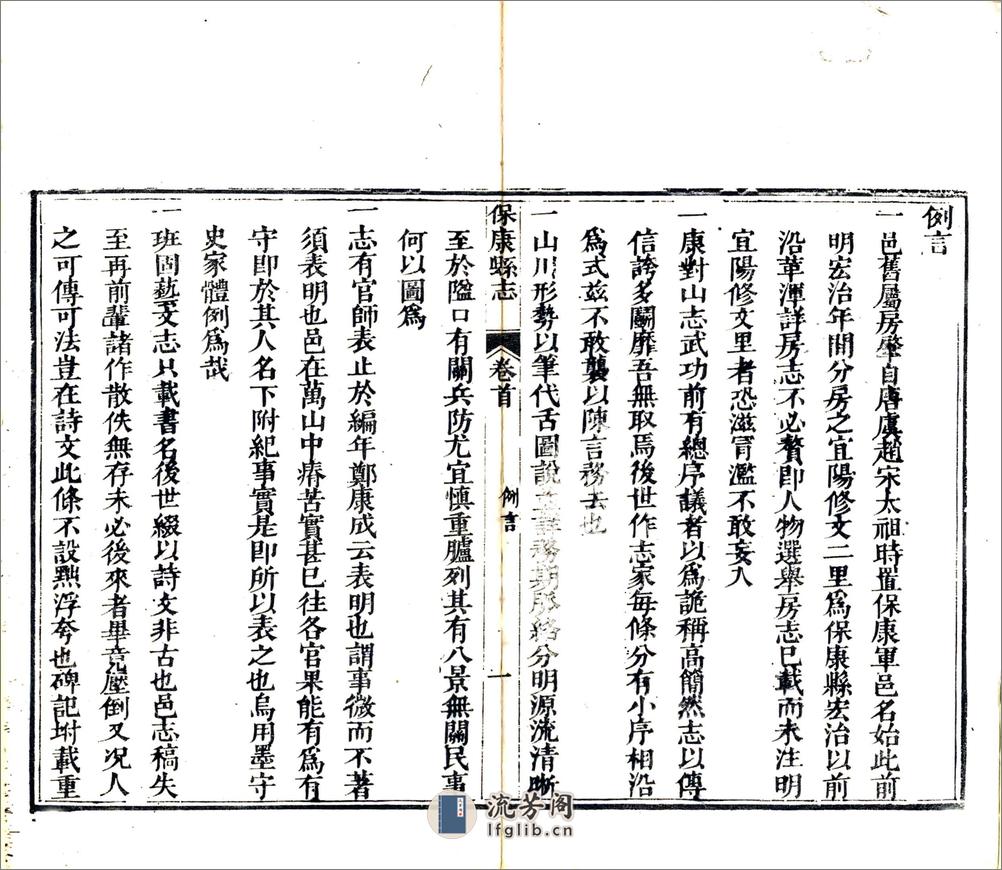 例言
一邑舊屬房肇自唐虞趙宋太祖時置保康軍邑名始此前
明宏治年間分房之宜陽修文二里爲保康縣宏治以前
沿革渾詳房志不必贅即人物選舉房志已載而未注明
宜陽修文里者恐滋冐濫不敢妄入
一康對山志武功前有總序議者以爲詭稱高簡然志以傳
信誇多鬭靡吾無取焉後世作志家每條分有小序相沿
爲式兹不敢襲以陳言務去也
一山川形勢以筆代舌圖說 務期脈絡分明源流清晰
保康縣志
卷首
例言
一
至於隘口有關兵防尤宜慎重臚列其有八景無關民事
何以圖爲
一志有官師表止於編年鄭康成云表明也謂事微而不著
須表明也邑在萬山中瘠苦實甚已往各官果能有爲有
守即於其人名下附紀事實是即所以表之也烏用墨守
史家體例爲哉
一班固藝文志只載書名後世綴以詩文非古也邑志稿失
至再前輩諸作散佚無存未必後來者畢竟壓倒又况人
之可傳可法豈在詩文此條不設㸃浮夸也碑記坿載重
流芳阁
lfglib.cn